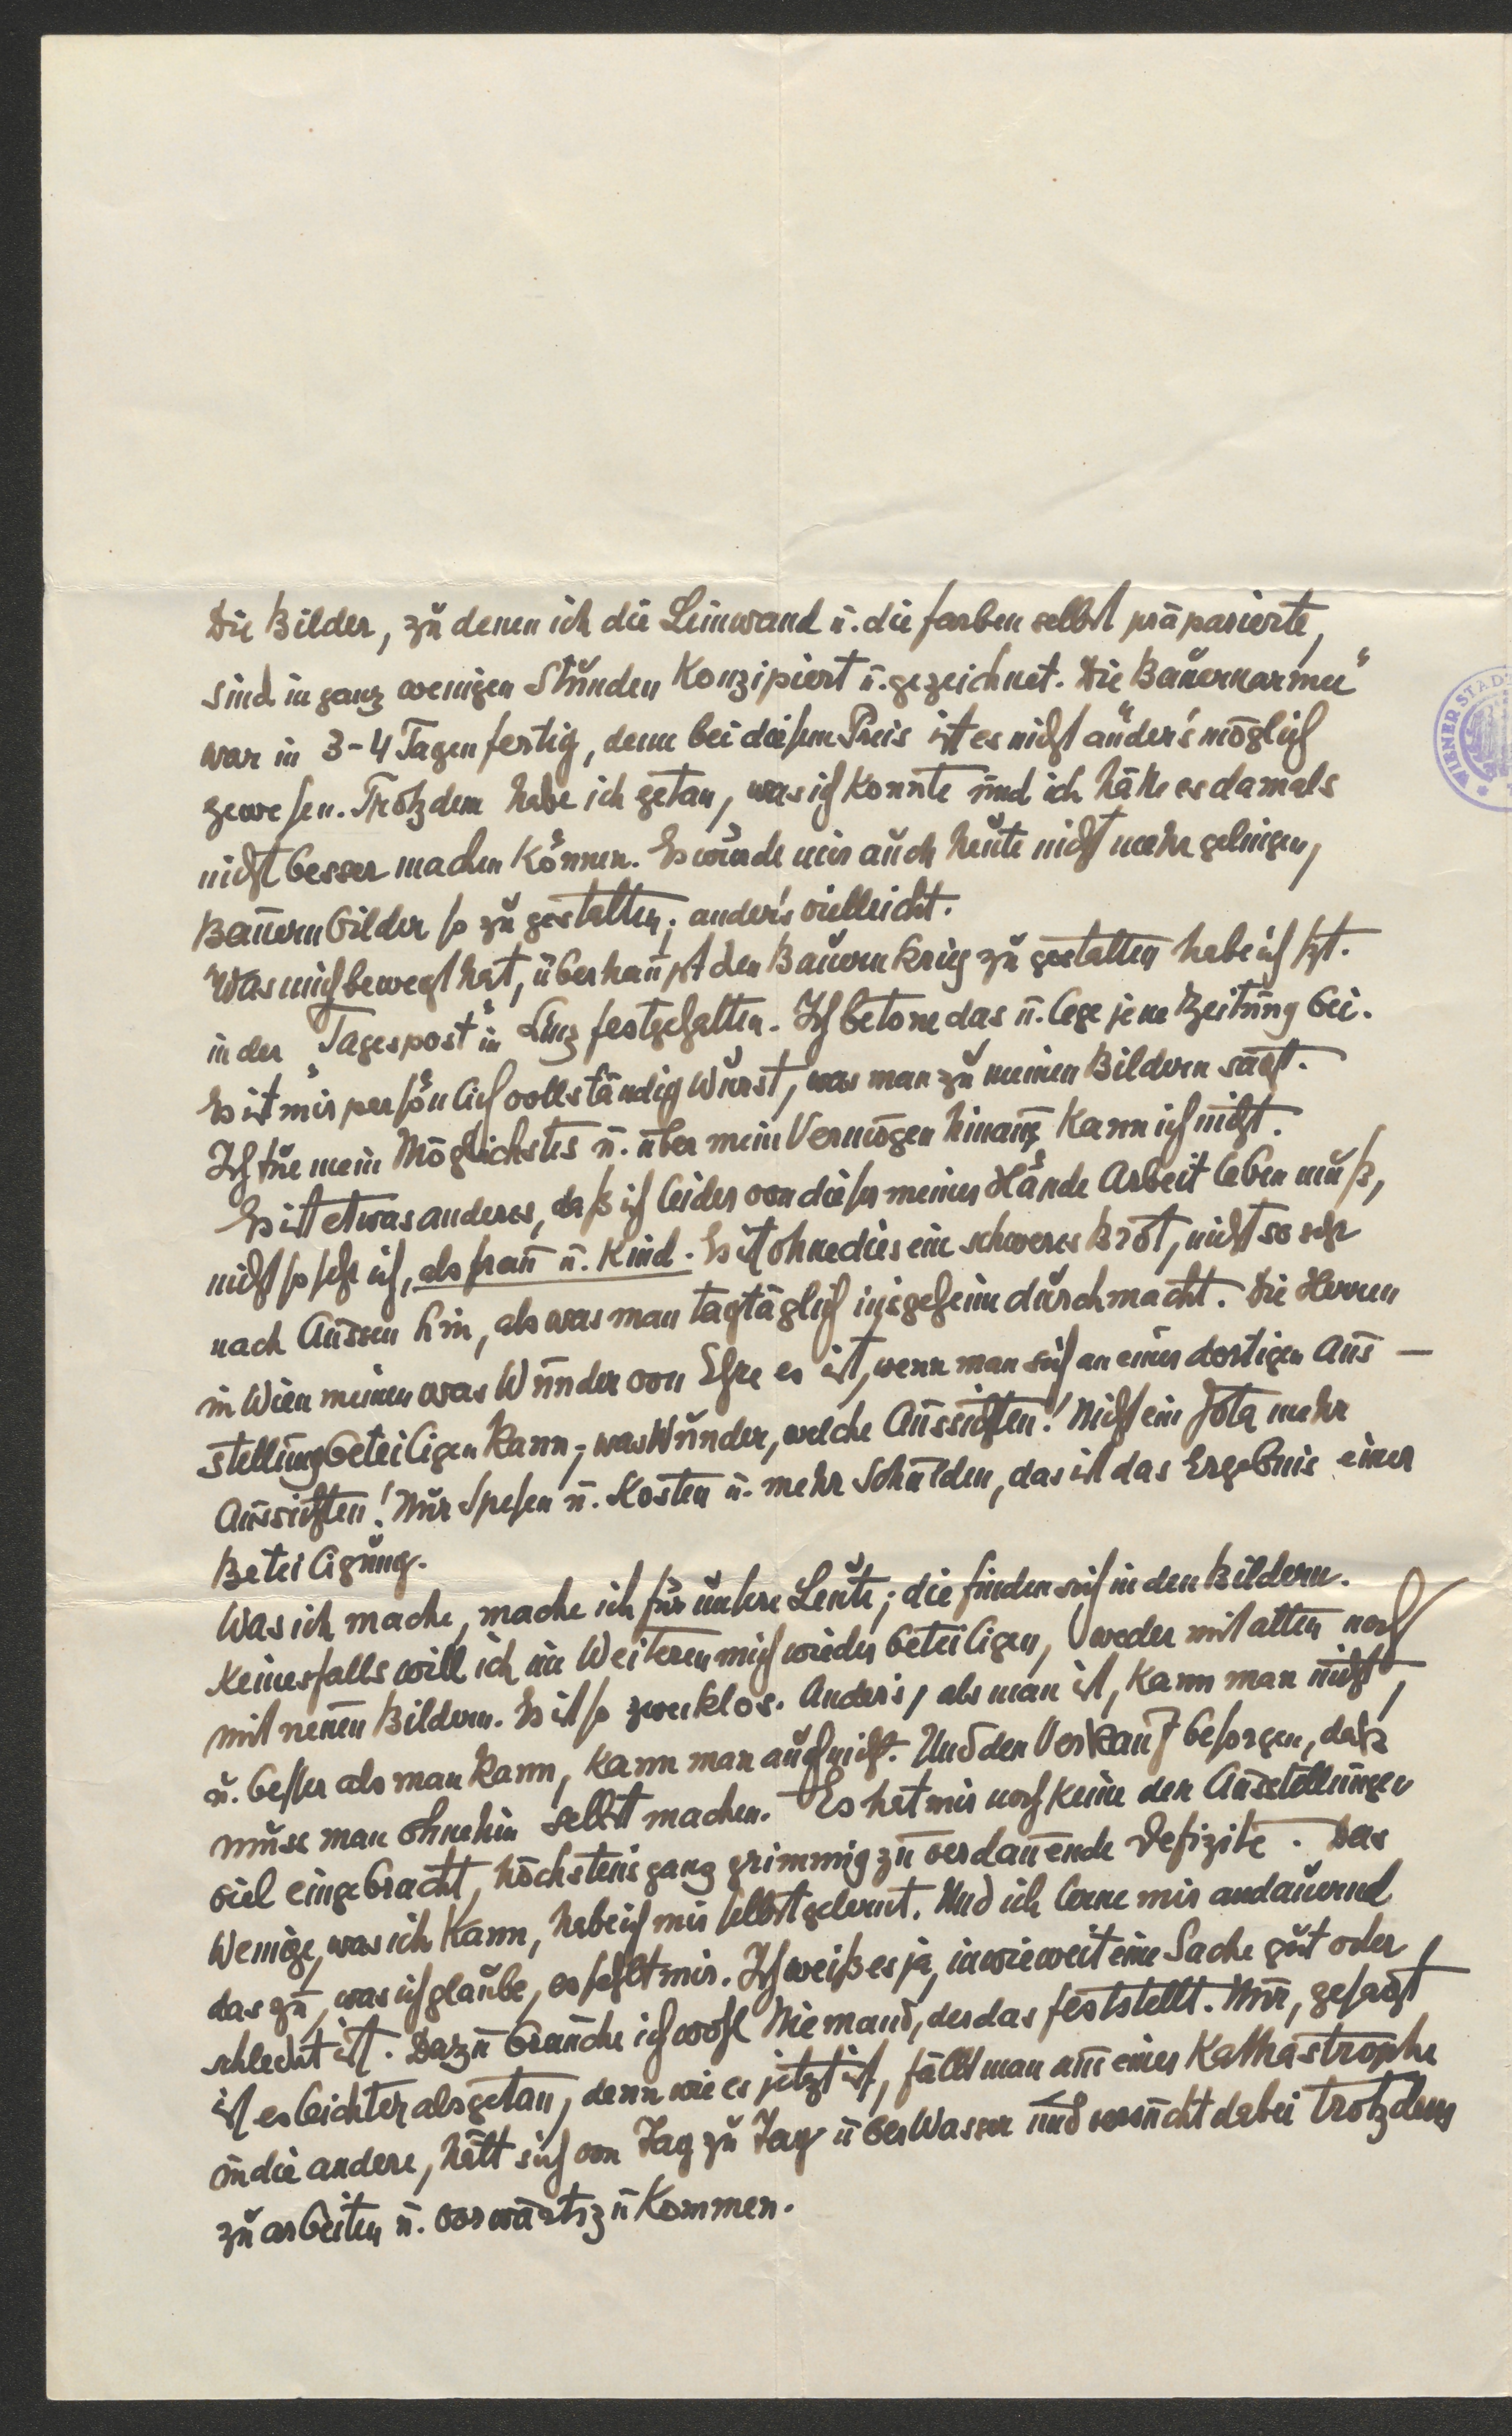 Die Bilder, zu denen ich die Leinwand u. die Farben selbst präparierte,
sind in ganz wenigen Stunden konzipiert u. gezeichnet. Die Bauernarmee"
war in 3-4 Tagen fertig, denn bei diesem Preis ist es nicht anders möglich
gewesen. Trotzdem habe ich getan, was ich konnte und ich hätte es damals
nicht besser machen können. Es würde mir auch heute nicht mehr gelingen,
Bauernbilder so zu gestalten; ander's vielleicht.
Was mich bewegt hat, überhaupt den Bauernkrieg zu gestalten habe ich szt.
in der "Tagespost" in Linz festgehalten. Ich betone das u. lege jene Zeitung bei.
Es ist mir persönlich vollständig Wurst, was man zu meinen Bildern sagt.
Ich tue mein Möglichstes u. über mein Vermögen hinaus kann ich nicht.
Es ist etwas anderes, daß ich leider von dieser meiner Hände Arbeit leben muß,
nicht so sehr ich, als Frau u. Kind. Es ist ohnedies ein schweres Brot, nicht so sehr
nach Aussen hin, als was man tagtäglich insgeheim durchmacht. Die Herren
in Wien meinen was Wunder von Ehre es ist, wenn man sich an einer dortigen Aus-
stellung beteiligen kann; was Wunder, welche Aussichten! Nicht ein Jota mehr
Aussichten! Nur Spesen u. Kosten u. mehr Schulden, das ist das Ergebnis einer
Beteiligung.
Was ich mache, mache ich für unsere Leute; die finden sich in den Bildern.
Keinesfalls will ich im Weiteren mich wieder beteiligen, weder mit alten noch
mit neuen Bildern. Es ist so zwecklos. Ander's, als man ist, kann man nicht,
u. besser als man kann, kann man auch nicht. Und den Verkauf besorgen, daß
muss man ohnehin selbst machen. Es hat mir noch keine der Ausstellungen
viel eingebracht, höchstens ganz grimmig zu verdauende Defizite. Das
Wenige, was ich kann, habe ich mir selbst gelernt. Und ich lerne mir andauernd
das zu, was ich glaube, es fehlt mir. Ich weiß es ja, inwieweit eine Sache gut oder
schlecht ist. Dazu brauche ich wohl Niemand, der das feststellt. Nur, gesagt
ist es leichter als getan, denn wie es jetzt ist, fällt man aus einer Kathastrophe
in die andere, hält sich von Tag zu Tag über Wasser und versucht dabei trotzdem
zu arbeiten u. vorwärts zu kommen.
WIENER STAD